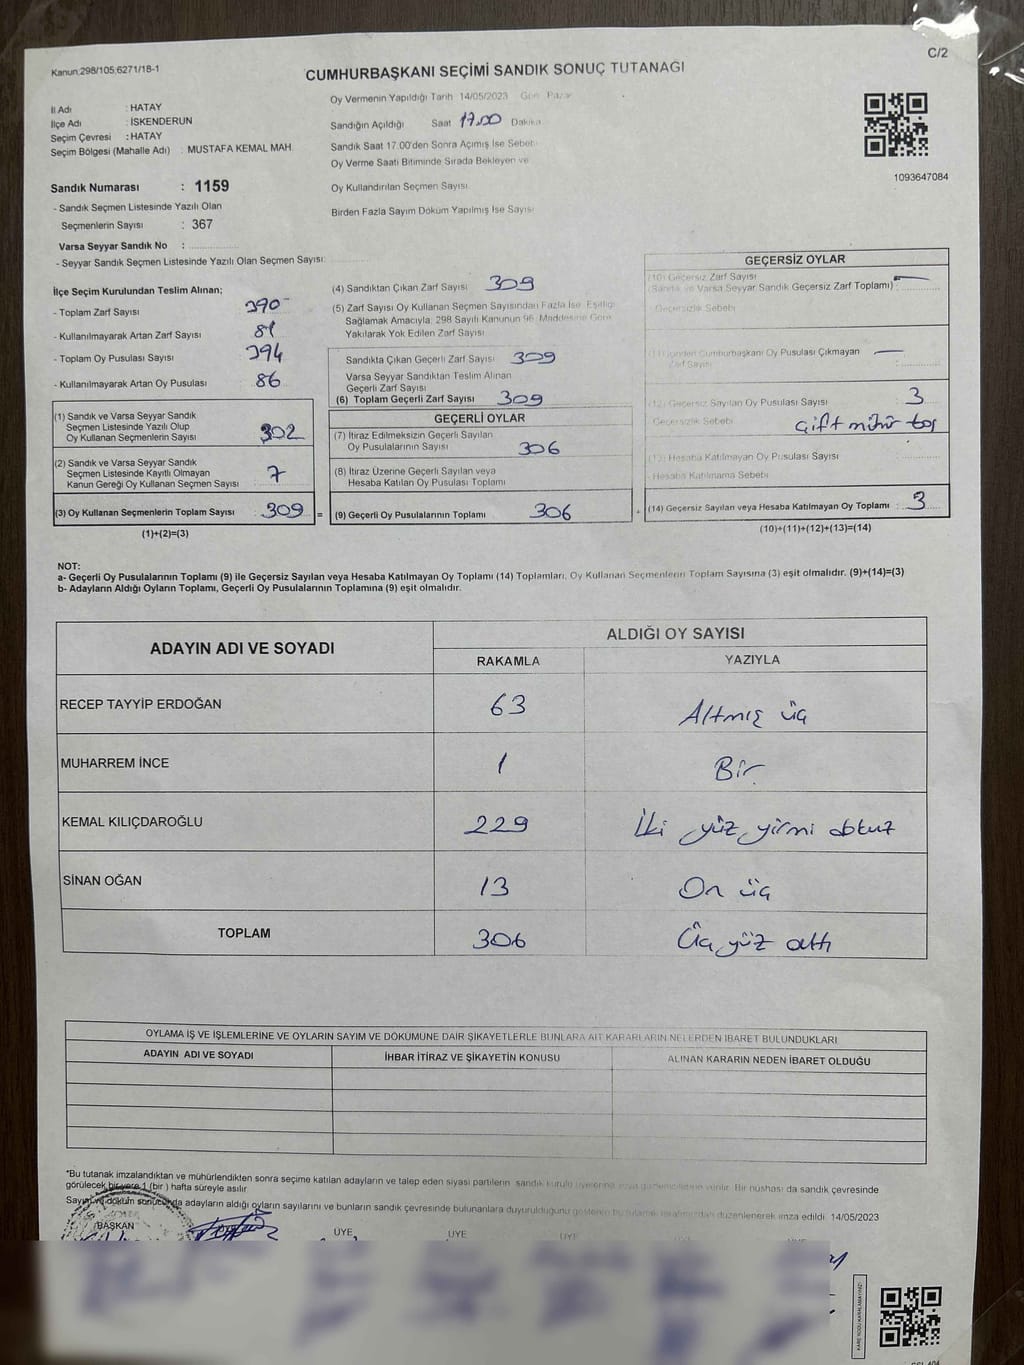 Kanun:298/105;6271/18-1
C/2
CUMHURBAŞKANI SEÇİMİ SANDIK SONUÇ TUTANAĞI
İl Adı : HATAY
İlçe Adı : İSKENDERUN
Seçim Çevresi : HATAY
Seçim Bölgesi (Mahalle Adı) : MUSTAFA KEMAL MAH.
Oy Vermenin Yapıldığı Tarih 14/05/2023 Gün Pazar
Sandığın Açıldığı Saat 17.00 Dakika
Sandık Saat 17.00'den Sonra Açımış İse Sebebi
Oy Verme Saati Bitiminde Sırada Bekleyen ve
Oy Kullandırılan Seçmen Sayısı
Birden Fazla Sayım Döküm Yapılmış İse Sayısı
1093647084
Sandık Numarası : 1159
- Sandık Seçmen Listesinde Yazılı Olan
Seçmenlerin Sayısı : 367
Varsa Seyyar Sandık No :
- Seyyar Sandık Seçmen Listesinde Yazılı Olan Seçmen Sayısı:
İlçe Seçim Kurulundan Teslim Alınan;
- Toplam Zarf Sayısı : 390
- Kullanılmayarak Artan Zarf Sayısı : 81
- Toplam Oy Pusulası Sayısı 394
- Kullanılmayarak Artan Oy Pusulası : 86
(1) Sandık ve Varsa Seyyar Sandık
Seçmen Listesinde Yazılı Olup
Oy Kullanan Seçmenlerin Sayısı : 302
(2) Sandık ve Varsa Seyyar Sandık
Seçmen Listesinde Kayıtlı Olmayan
Kanun Gereği Oy Kullanan Seçmen Sayısı : 7
(3) Oy Kullanan Seçmenlerin Toplam Sayısı : 309 =
(1)+(2)=(3)
(4) Sandıktan Çıkan Zarf Sayısı 309
(5) Zarf Sayısı Oy Kullanan Seçmen Sayısından Fazla İse, Eşitliği
Sağlamak Amacıyla; 298 Sayılı Kanunun 96. Maddesine Göre
Yakılarak Yok Edilen Zarf Sayısı
Sandıkta Çıkan Geçerli Zarf Sayısı : 309
Varsa Seyyar Sandıktan Teslim Alınan
Geçerli Zarf Sayısı
(6) Toplam Geçerli Zarf Sayısı : 309
GEÇERLİ OYLAR
(7) İtiraz Edilmeksizin Geçerli Sayılan
Oy Pusulalarının Sayısı : 306
(8) İtiraz Üzerine Geçerli Sayılan veya
Hesaba Katılan Oy Pusulası Toplamı
(9) Geçerli Oy Pusulalarının Toplamı : 306 +
GEÇERSİZ OYLAR
(10) Geçersiz Zarf Sayısı
(Sandık ve Varsa Seyyar Sandık Geçersiz Zarf Toplamı) : —
Geçersizlik Sebebi
(11) İçinden Cumhurbaşkanı Oy Pusulası Çıkmayan
Zarf Sayısı : —
(12) Geçersiz Sayılan Oy Pusulası Sayısı : 3
Geçersizlik Sebebi çift mühür boş
(13) Hesaba Katılmayan Oy Pusulası Sayısı
Hesaba Katılmama Sebebi
(14) Geçersiz Sayılan veya Hesaba Katılmayan Oy Toplamı : 3
(10)+(11)+(12)+(13)=(14)
NOT:
a- Geçerli Oy Pusulalarının Toplamı (9) ile Geçersiz Sayılan veya Hesaba Katılmayan Oy Toplamı (14) Toplamları, Oy Kullanan Seçmenlerin Toplam Sayısına (3) eşit olmalıdır. (9)+(14)=(3)
b- Adayların Aldığı Oyların Toplamı, Geçerli Oy Pusulalarının Toplamına (9) eşit olmalıdır.
ADAYIN ADI VE SOYADI ALDIĞI OY SAYISI
RAKAMLA YAZIYLA
RECEP TAYYİP ERDOĞAN 63 Altmış üç
MUHARREM İNCE 1 Bir
KEMAL KILIÇDAROĞLU 229 İki yüz yirmi dokuz
SİNAN OĞAN 13 On üç
TOPLAM 306 Üç yüz altı
OYLAMA İŞ VE İŞLEMLERİNE VE OYLARIN SAYIM VE DÖKÜMÜNE DAİR ŞİKAYETLERLE BUNLARA AİT KARARLARIN NELERDEN İBARET BULUNDUKLARI
ADAYIN ADI VE SOYADI İHBAR İTİRAZ VE ŞİKAYETİN KONUSU ALINAN KARARIN NEDEN İBARET OLDUĞU
*Bu tutanak imzalandıktan ve mühürlendikten sonra seçime katılan adayların ve talep eden siyasi partilerin sandık kurulu üyelerine veya verilir. Bir nüshası da sandık çevresinde
görülecek bir yere 1 (bir ) hafta süreyle asılır
Sayım ve döküm sonucunda adayların aldığı oyların sayılarını ve bunların sandık çevresinde bulunanlara duyurulduğunu gösterir bu tutanak tarafımızdan düzenlenerek imza edildi. 14/05/2023
BAŞKAN ÜYE ÜYE ÜYE
KARE KODU KARALAMAYINIZ!